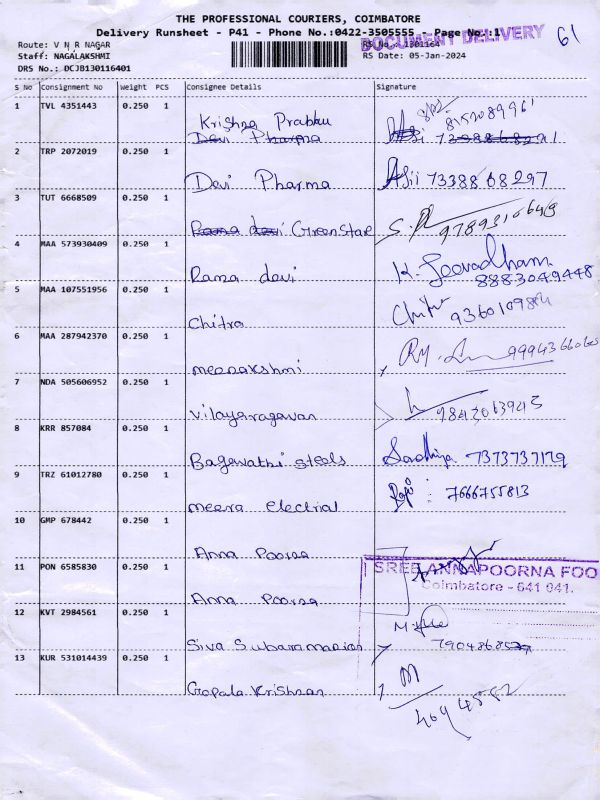 THE PROFESSIONAL COURIERS, COIMBATORE
Delivery Runsheet - P41 - Phone No.:0422-3505555 - Page No.:1
DOCUMENT DELIVERY
61
Route: V N R NAGAR
RS No.: 1301164
Staff: NAGALAKSHMI
RS Date: 05-Jan-2024
DRS No.: DCJB130116401
S No Consignment No Weight PCS Consignee Details Signature
1 TVL 4351443 0.250 1 Krishna Prabhu
Devi Pharma
2 TRP 2072019 0.250 1 Devi Pharma 7338868297
3 TUT 6668509 0.250 1 Rama devi Green Star
4 MAA 573930409 0.250 1 Rama devi K. 8883049448
5 MAA 107551956 0.250 1 Chitra Chitra
6 MAA 287942370 0.250 1 meenakshmi
7 NDA 505606952 0.250 1 Vilayaragavan 9843063945
8 KRR 857084 0.250 1 Bagavathi steels Sadhiya 7373737179
9 TRZ 61012780 0.250 1 meera electrial 7666755813
10 GMP 678442 0.250 1 Anna Poorna
11 PON 6585830 0.250 1 Anna Poorna
SREE ANNAPOORNA FOO
Coimbatore - 641 041.
12 KVT 2984561 0.250 1 Siva Subaramanian
13 KUR 531014439 0.250 1 Gopala Krishnan